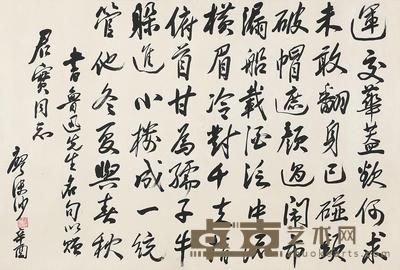 運交華蓋欲何求
未敢翻身已碰頭
破帽遮顏過鬧市
漏船載酒泛中流
橫眉冷對千夫指
俯首甘為孺子牛
躲進小樓成一統
管他冬夏與春秋
書魯迅先生名句以贈
君實同志
廖沫沙
辛酉
卓克艺术网